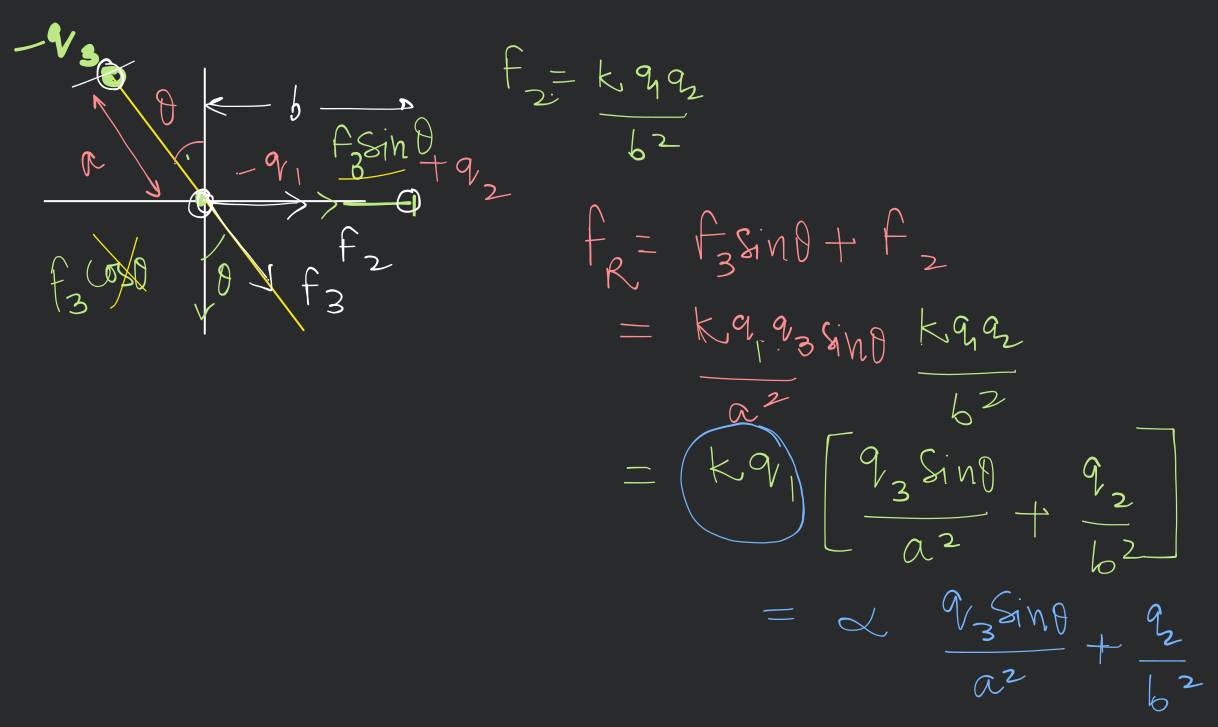 -q₃
θ
a
b
f₃sinθ
-q₁
+q₂
f₂
f₃cosθ
θ
f₃
f₂ = kq₁q₂/b²
f_R = f₃sinθ + f₂
= kq₁q₃sinθ/a² kq₁q₂/b²
= kq₁ [q₃sinθ/a² + q₂/b²]
= ∝ q₃sinθ/a² + q₂/b²